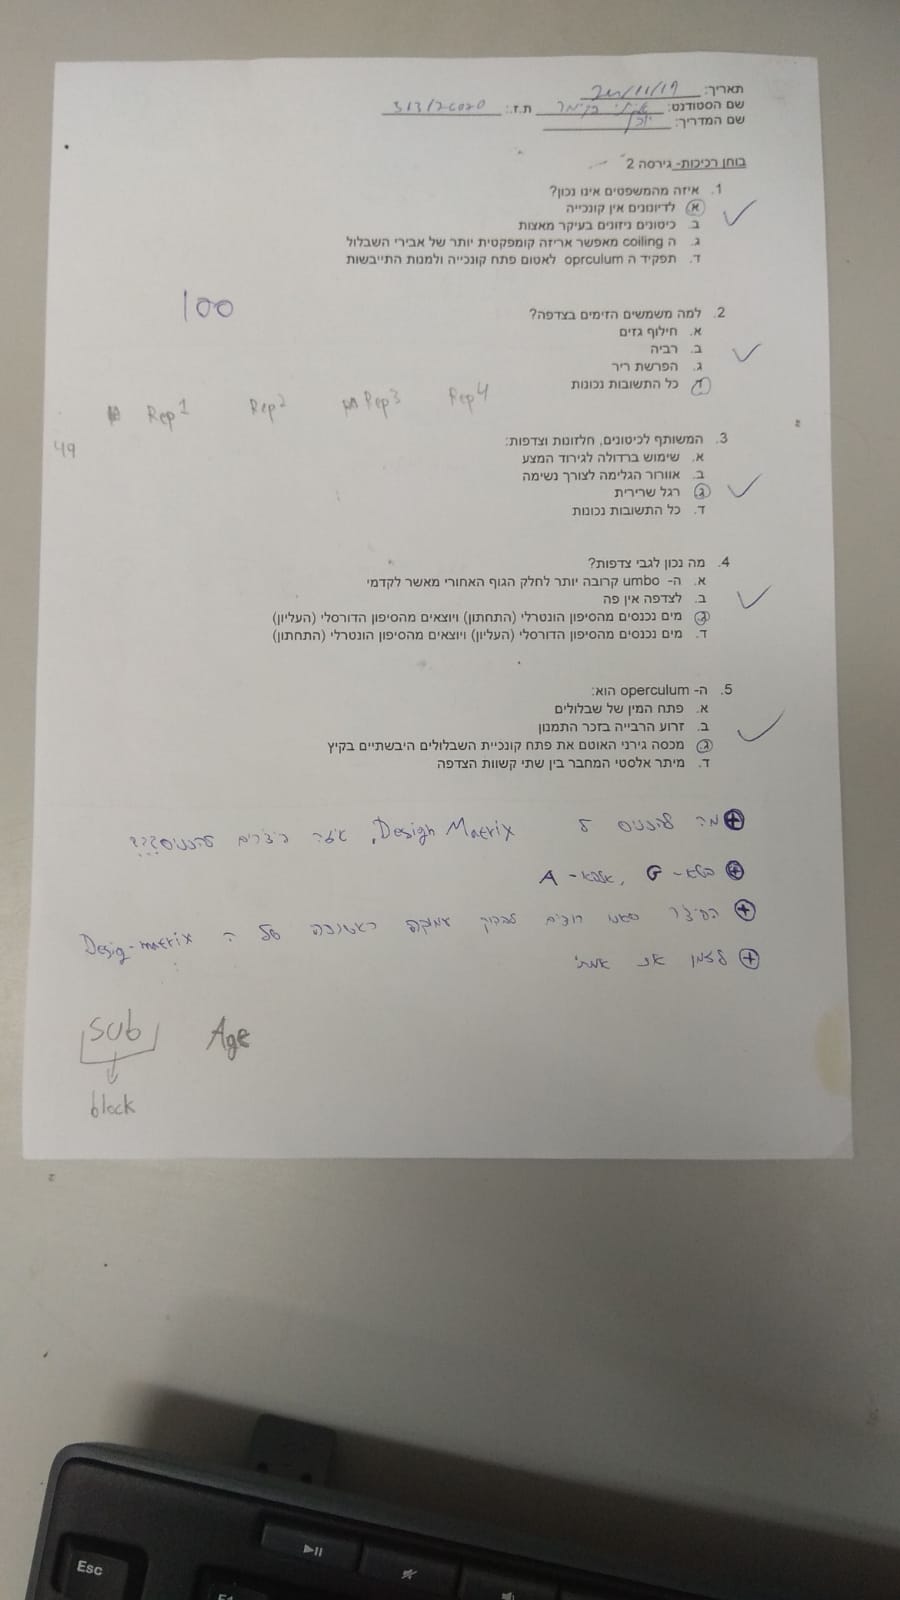 תאריך: 20/11/19
שם הסטודנט: ת.ז.:
שם המדריך:
בוחן רכיכות- גירסה 2
1. איזה מהמשפטים אינו נכון?
א. לדיונונים אין קונכייה
ב. כיטונים ניזונים בעיקר מאצות
ג. ה coiling מאפשר אריזה קומפקטית יותר של אבירי השבלול
ד. תפקיד ה oprculum לאטום פתח קונכייה ולמנות התייבשות
100
2. למה משמשים הזימים בצדפה?
א. חילוף גזים
ב. רביה
ג. הפרשת ריר
ד. כל התשובות נכונות
Rep1 Rep2 Rep3 Rep4
49
3. המשותף לכיטונים, חלזונות וצדפות:
א. שימוש ברדולה לגירוד המצע
ב. אוורור הגלימה לצורך נשימה
ג. רגל שרירית
ד. כל התשובות נכונות
4. מה נכון לגבי צדפות?
א. ה- umbo קרובה יותר לחלק הגוף האחורי מאשר לקדמי
ב. לצדפה אין פה
ג. מים נכנסים מהסיפון הונטרלי (התחתון) ויוצאים מהסיפון הדורסלי (העליון)
ד. מים נכנסים מהסיפון הדורסלי (העליון) ויוצאים מהסיפון הונטרלי (התחתון)
5. ה- operculum הוא:
א. פתח המין של שבלולים
ב. זרוע הרבייה בזכר התמנון
ג. מכסה גירני האוטם את פתח קונכיית השבלולים היבשתיים בקיץ
ד. מיתר אלסטי המחבר בין שתי קשוות הצדפה
מה להכניס ל Design Matrix, איזה פיצ'רים להכניס???
בטא- G, אלפא- A
הפיצ'ר שאנו רוצים לבדוק עמודה ראשונה של ה Desig-matrix
לסמן או אמת'
Sub Age
block